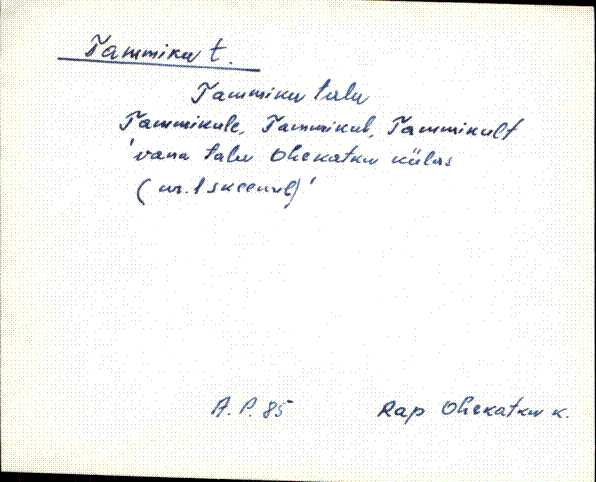 Tammiku t.
Tammiku talu
Tammikule, Tammikul, Tammikult
'vana talu Ohekatku külas
(nr. 1 skeemil)'
A. P. 85 Rap Ohekatku k.